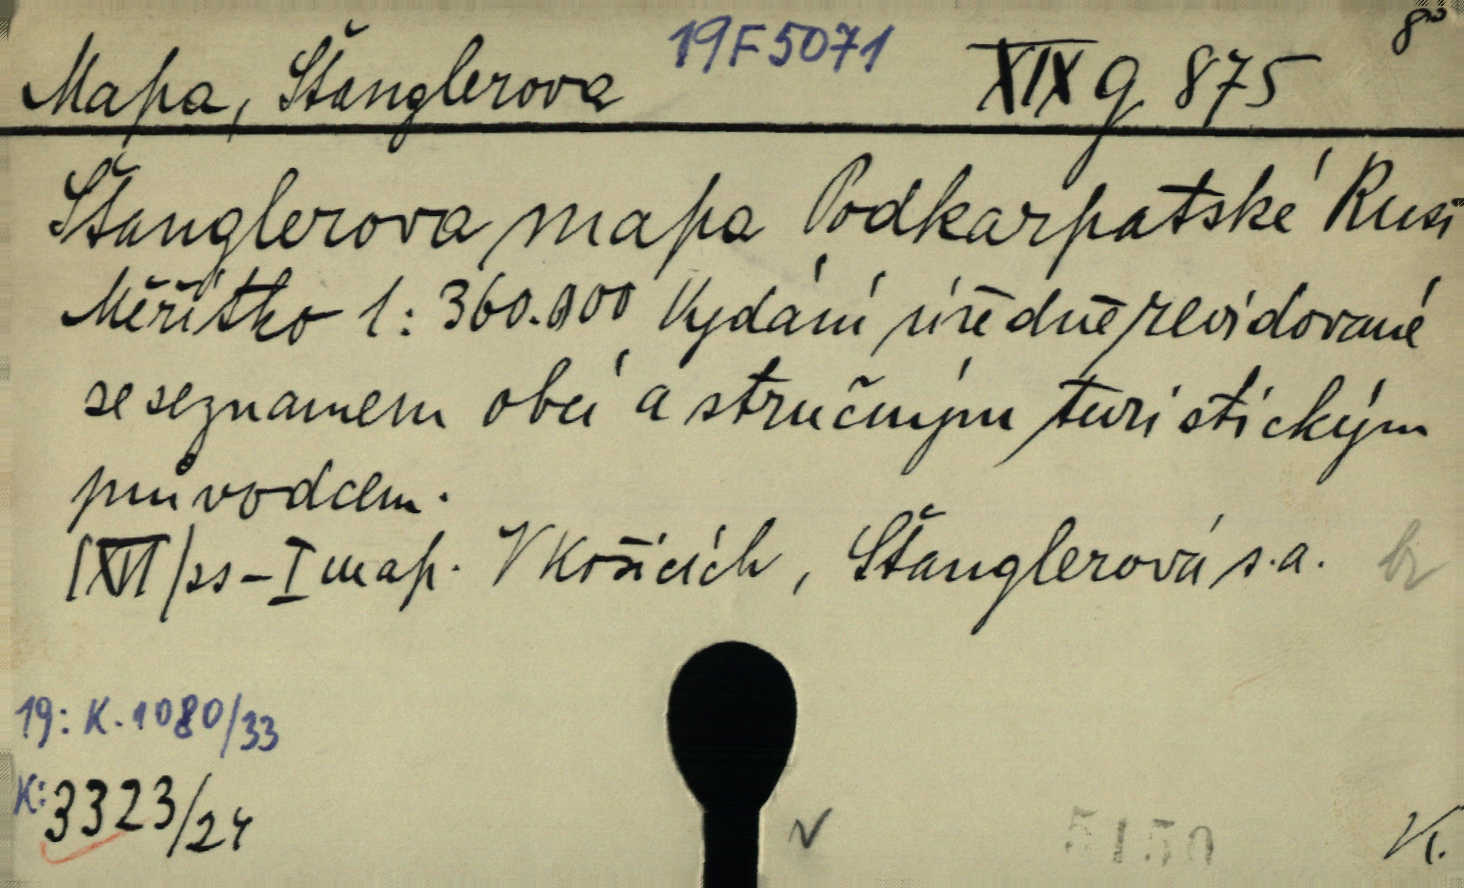 8°
19F5071
Mapa, Štanglerova XIX g 875
Štanglerova mapa Podkarpatské Rusi
Měřítko 1:360.000 Vydání úředně revidované
se seznamem obcí a stručným turistickým
průvodcem.
I map. V Košicích, Štanglerová s.a.
19: K. 1080/33
K: 3323/24
5150